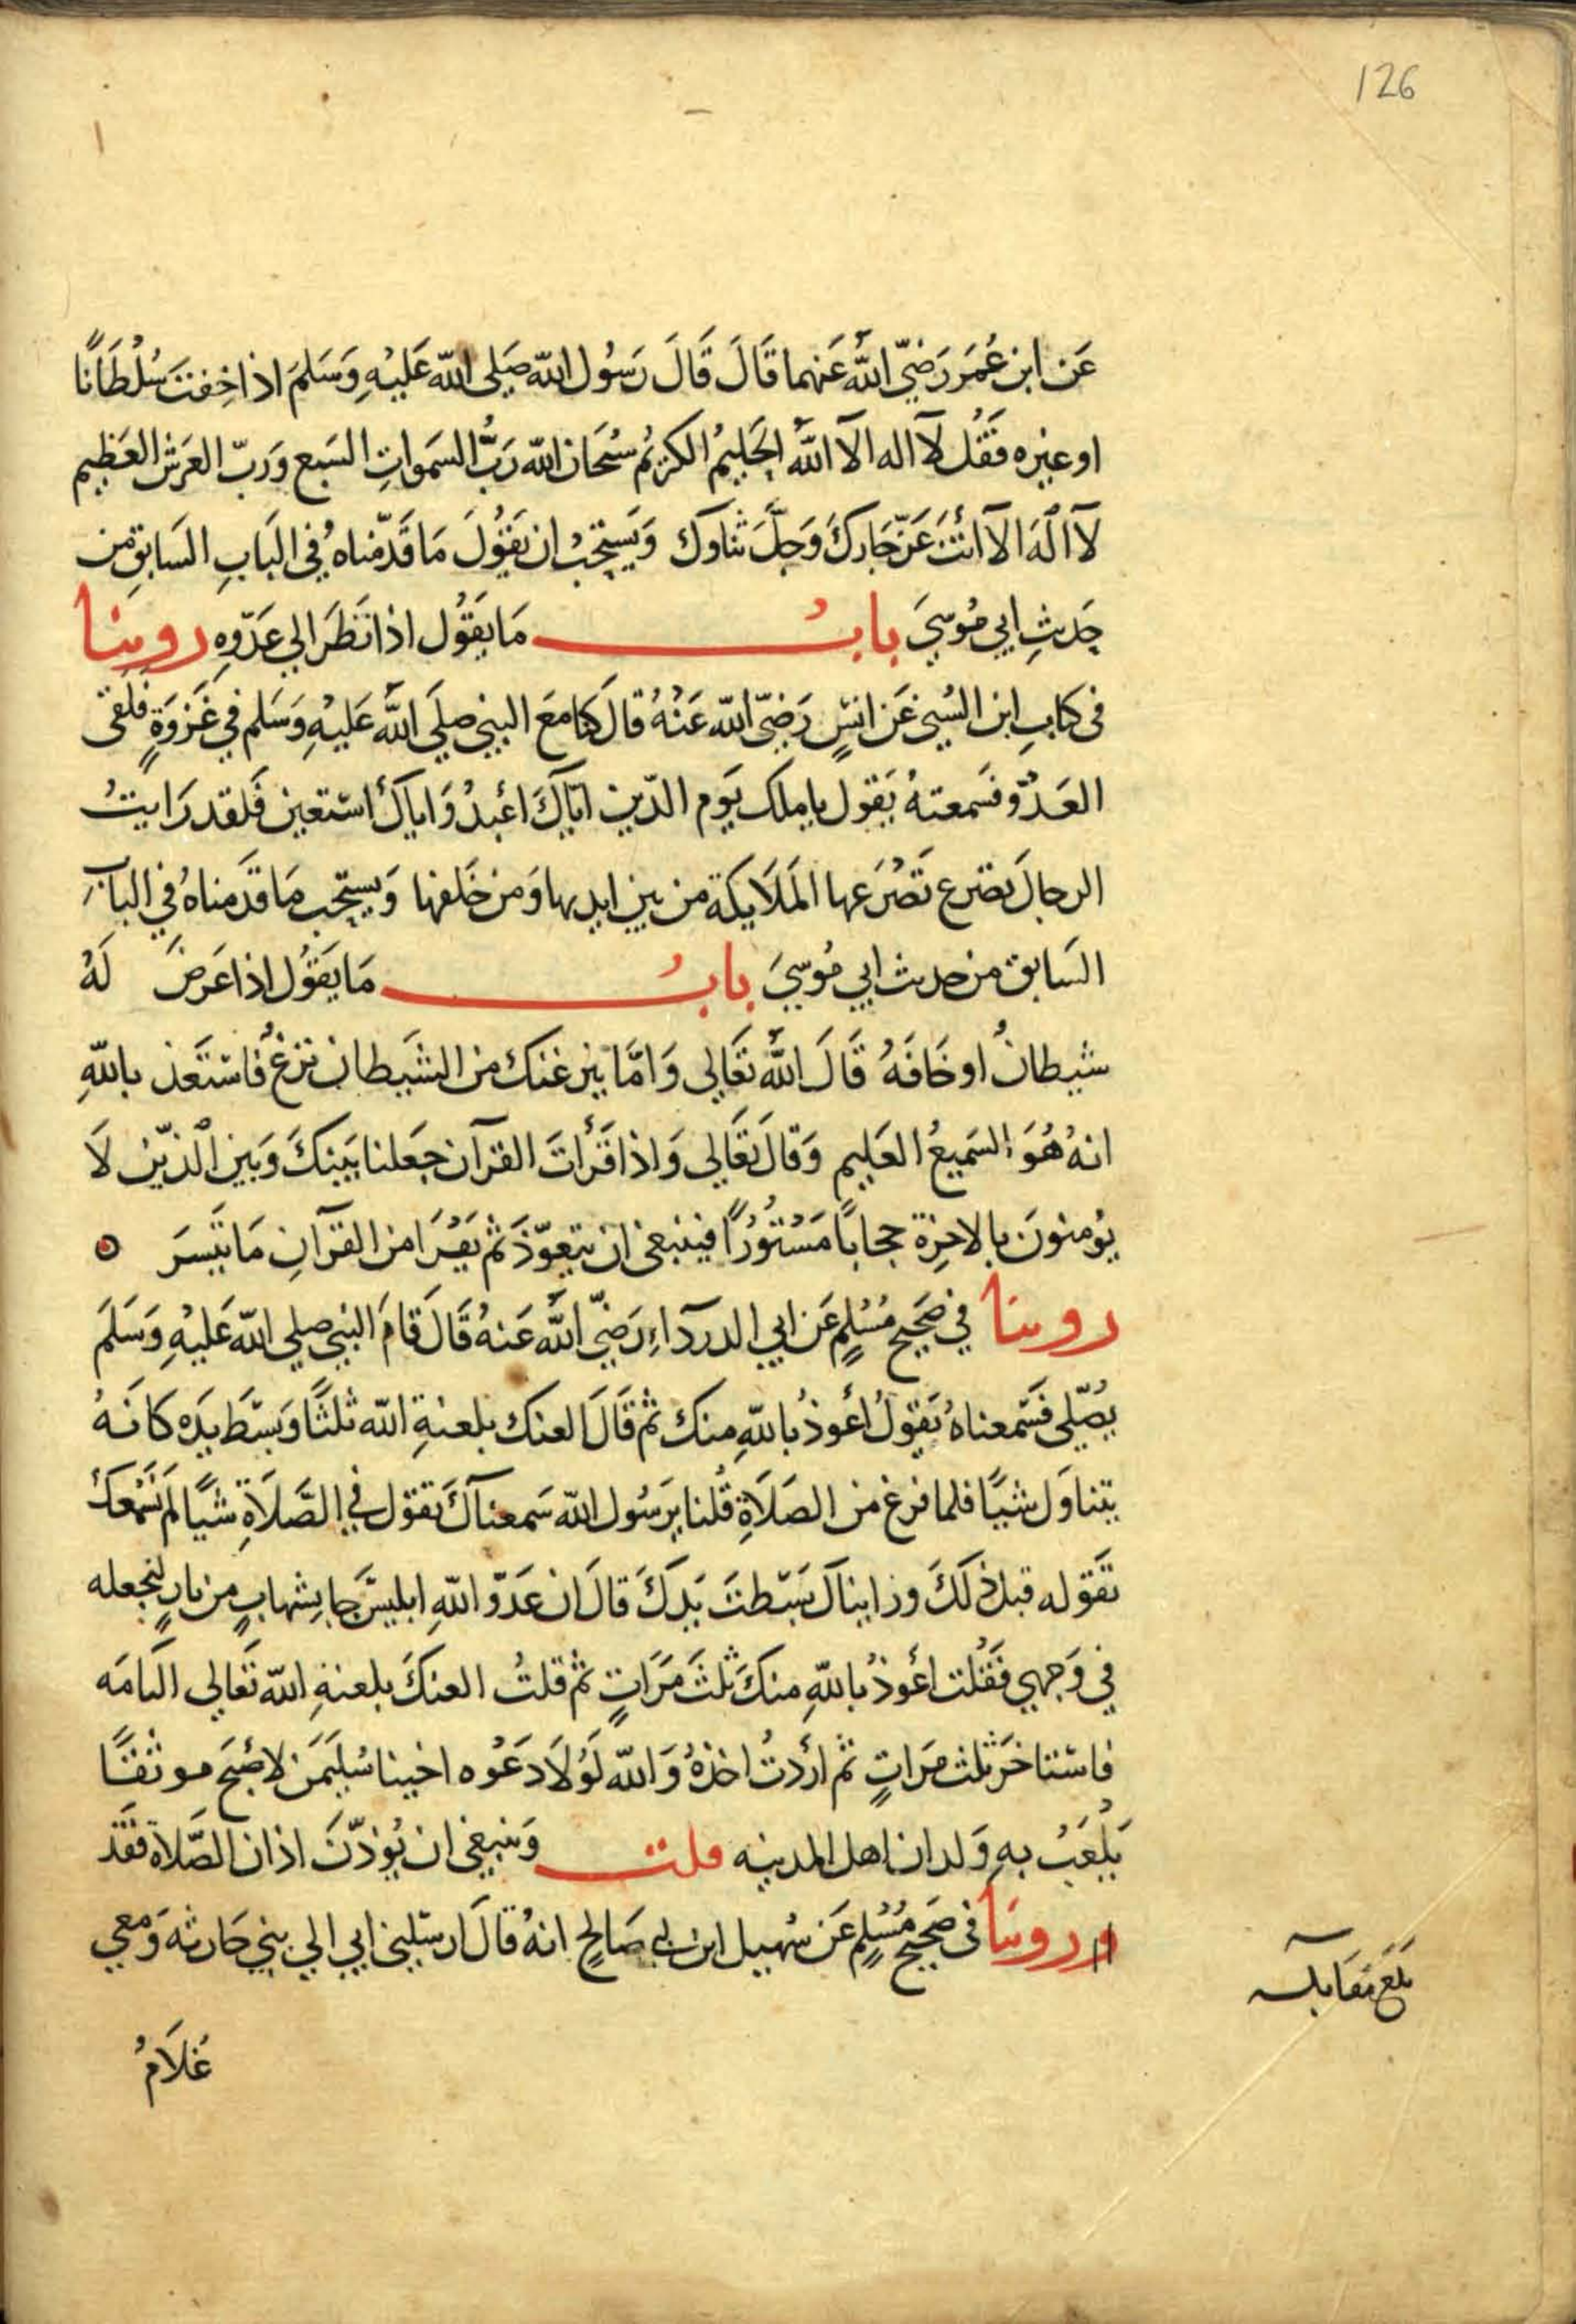 126
عَن ابن عُمَرَ رَضيّ اللهُ عَنهما قَالَ قَالَ رَسُول الله صَلى الله عَليْهِ وَسَلمَ اذا خِفتَ سُلْطَانًا
او غيره فَقُل لآ اله الآ اللهُ الحَليمُ الكريمُ سُبحَان الله رَبُّ السَموَاتِ السَبع وَربّ العَرش العَظيم
لآ الَهَ الآ انْتَ عَزّ جَارُكَ وَجَلَّ ثناوك وَيَستحِبُ ان يَقُولَ مَا قَدّمناهُ في البَابِ السَابق من
حَديثِ ابي مُوسيَ بابُ مَا يَقُول اذا نَظَرَ الي عَدّوهِ روينا
فى كتابِ ابن السُني عَن انسٍ رَضيّ الله عَنْهُ قالَ كنا مَعَ النبي صلي اللهُ عَليْهِ وَسَلم في غَزوَةٍ فلَقى
العَدُوّ فسَمعتهُ يَقول يا ملك يَوم الدّين اياكَ اعْبدُ وَاياكَ استعين فَلقد رَايتُ
الرجالَ تصرع تَصْرَعها المَلَايكة من بين ايديها وَمن خَلفها وَيستحِب مَا قَدمناهُ في البابِ
السَابق من حديث ابي مُوسيَ بابُ مَا يَقُول اذا عَرضَ لَهُ
شيطانُ او خَافَهُ قَالَ اللهُ تَعَالى وَامَّا ينزغنكَ من الشيَطان نزغُ فَاستَعذ باللهِ
انهُ هُوَ السَميعُ العَليم وَقالَ تَعَالي وَاذا قَرَأتَ القرآن جَعلنا بَينكَ وَبين الّذيْن لَا
يُومنونَ بالاخِرة حجابًا مَسْتُورًا فينبغى ان يتعوّذَ ثم يَقْرَا من القرآنِ مَا تيَسرَ
روينا في صَحيح مُسْلِمٍ عَن ابي الدردآءِ رَضيّ اللهُ عَنهُ قَالَ قامَ النبي صلي الله عَليْهِ وَسَلمَ
يُصَلّي فَسَمعناهُ يَقولُ أعوذُ باللهِ منكَ ثم قَالَ العنك بلعنةِ الله ثلثًا وَبسَطَ يَدَه كانهُ
يتناوَل شيًا فلما فرغ من الصَلَاةِ قُلنا يرَسُول الله سَمعنآكَ تقول في الصَّلَاةِ شيًا لم نَسْمَعكَ
تَقوله قبل ذلَكَ وراينآك بَسَطتَ يَدَكَ قالَ ان عَدُوّ اللهِ ابليسَ جا بشهابٍ من نارٍ ليجعله
في وَجهي فَقُلت اعُوذُ باللهِ منكَ ثلثَ مَرَاتٍ ثم قلتُ العنكَ بلعنةِ الله تَعَالي التامَه
فاستاخَرَ ثلث مَرَاتٍ ثم ارَدتُ اخذهُ وَالله لَوْلَا دَعْوه اخينا سُليَمَن لاصْبَحَ موثقًا
يَلْعَبُ بهِ وَلدان اهل المدينه قلت وَينبغي ان يُوَذّنَ اذان الصَّلاة فَقَد
وروينا فى صَحيحِ مُسْلمٍ عَن سُهيل ابن ابي صَالحٍ انهُ قالَ ارسَلني ابي الي بني حَارثه وَمَعي
غلَامُ
بلغ مقابلة